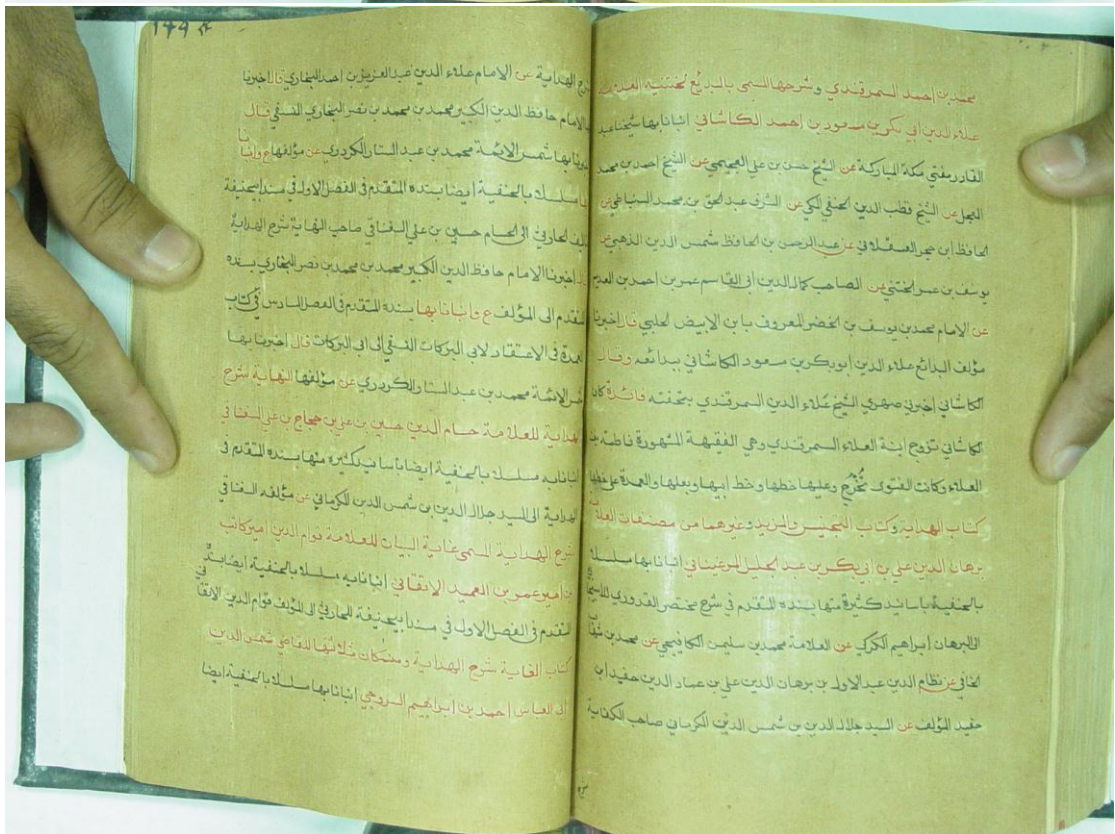 محمد بن احمد السمرقندي وشرحها المسمى بالبديع لختنيه العلامة
علاء الدين ابي بكر بن مسعود بن احمد الكاشاني انبانا بها شيخنا عبد
القادر مفتي مكة المباركة عن الشيخ حسن بن علي العجيمي عن الشيخ احمد بن محمد
العجل عن الشيخ قطب الدين الحنفي المكي عن الشرف عبد الحق بن محمد السنباطي عن
الحافظ ابن حجر العسقلاني عن عبد الرحمن بن الحافظ شمس الدين الذهبي عن
يوسف بن عمر الختني عن الصاحب كمال الدين ابي القاسم عمر بن احمد بن العديم
عن الامام محمد بن يوسف بن الخضر المعروف بابن الابيض الحلبي قال اخبرنا
مؤلف البدائع علاء الدين ابو بكر بن مسعود الكاشاني ببدائعه وقال
الكاشاني اخبرني صهري الشيخ علاء الدين السمرقندي بتحفته فائدة كان
الكاشاني تزوج ابنة العلاء السمرقندي وهي الفقيهة المشهورة فاطمة بنت
العلاء وكانت الفتوى تخرج وعليها خطها وخط ابيها وبعلها والعمدة على خطها
كتاب الهداية وكتاب التجنيس والمزيد وغيرهما من مصنفات العلامة
برهان الدين علي بن ابي بكر بن عبد الجليل المرغيناني انبانا بها مسلسلا
بالحنفية باسانيد كثيرة منها بسنده المتقدم في شرح مختصر القدوري
الى البرهان ابراهيم الكركي عن العلامة محمد بن سليمن الكافيجي عن محمد بن شهاب
الخافي عن نظام الدين عبد الاول بن برهان الدين علي بن عماد الدين حفيد ابن
حفيد المؤلف عن السيد جلال الدين بن شمس الدين الكرماني صاحب الكفاية
١٤٩
شرح الهداية عن الامام علاء الدين عبد العزيز بن احمد البخاري قال اخبرنا
الامام حافظ الدين الكبير محمد بن محمد بن نصر البخاري النسفي قال
اخبرنا بها شمس الائمة محمد بن عبد الستار الكردري عن مؤلفها ع وانبانا
بها مسلسلا بالحنفية ايضا بسنده المتقدم في الفصل الاول في مسند ابي حنيفة
الحارثي الى الحسام حسين بن علي السغناقي صاحب النهاية شرح الهداية
قال اخبرنا الامام حافظ الدين الكبير محمد بن محمد بن نصر البخاري بسنده
المتقدم الى المؤلف ع وانبانا بها بسنده المتقدم في الفصل السادس في كتاب
العمدة في الاعتقاد لابي البركات النسفي الى ابي البركات قال اخبرنا بها
شمس الائمة محمد بن عبد الستار الكردري عن مؤلفها النهاية شرح
الهداية للعلامة حسام الدين حسين بن علي بن حجاج بن علي السغناقي
انبانا به مسلسلا بالحنفية ايضا باسانيد كثيرة منها بسنده المتقدم في
الهداية الى السيد جلال الدين بن شمس الدين الكرماني عن مؤلفه السغناقي
شرح الهداية المسمى غاية البيان للعلامة قوام الدين امير كاتب
بن امير عمر بن العميد الاتقاني انبانا به مسلسلا بالحنفية ايضا بسنده
المتقدم في الفصل الاول في مسند ابي حنيفة للحارثي الى المؤلف قوام الدين الاتقاني
كتاب الغاية شرح الهداية للقاضي شمس الدين
ابي العباس احمد بن ابراهيم السروجي انبانا بها مسلسلا بالحنفية ايضا